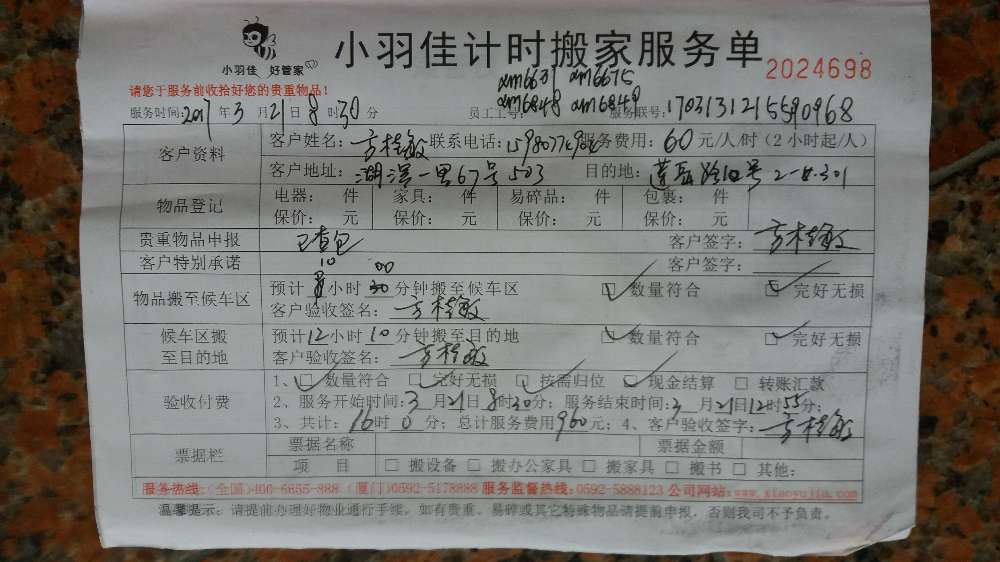 小羽佳 好管家
小羽佳计时搬家服务单
2024698
请您于服务前收拾好您的贵重物品!
xm6631 xm6675
xm6848 xm6849
服务时间:2017年3月21日8时30分 员工工号: 服务联号:1703131215590968
客户资料
客户姓名:方桂敏 联系电话: 服务费用:60元/人/时(2小时起/人)
客户地址:湖滨一里67号503 目的地:莲岳路 号2-301
物品登记
电器: 件 家具: 件 易碎品: 件 包裹: 件
保价: 元 保价: 元 保价: 元 保价: 元
贵重物品申报 已查包 客户签字:方桂敏
客户特别承诺 客户签字:
物品搬至候车区
预计10小时00分钟搬至候车区 ☑数量符合 ☑完好无损
客户验收签名:方桂敏
候车区搬至目的地
预计12小时10分钟搬至目的地 ☑数量符合 ☑完好无损
客户验收签名:方桂敏
验收付费
1、☑数量符合 ☑完好无损 ☑按需归位 ☑现金结算 □转账汇款
2、服务开始时间:3月21日8时30分;服务结束时间:3月21日12时55分;
3、共计:16时0分;总计服务费用960元;4、客户验收签字:方桂敏
票据栏
票据名称 票据金额
项 目 □搬设备 □搬办公家具 □搬家具 □搬书 □其他:
服务热线:(全国)400-6655-888 (厦门)0592-5178888 服务监督热线:0592-5888123 公司网站:www.xiaoyujia.com
温馨提示:请提前办理好物业通行手续,如有贵重、易碎或其它特殊物品请提前申报,否则我司不予负责。